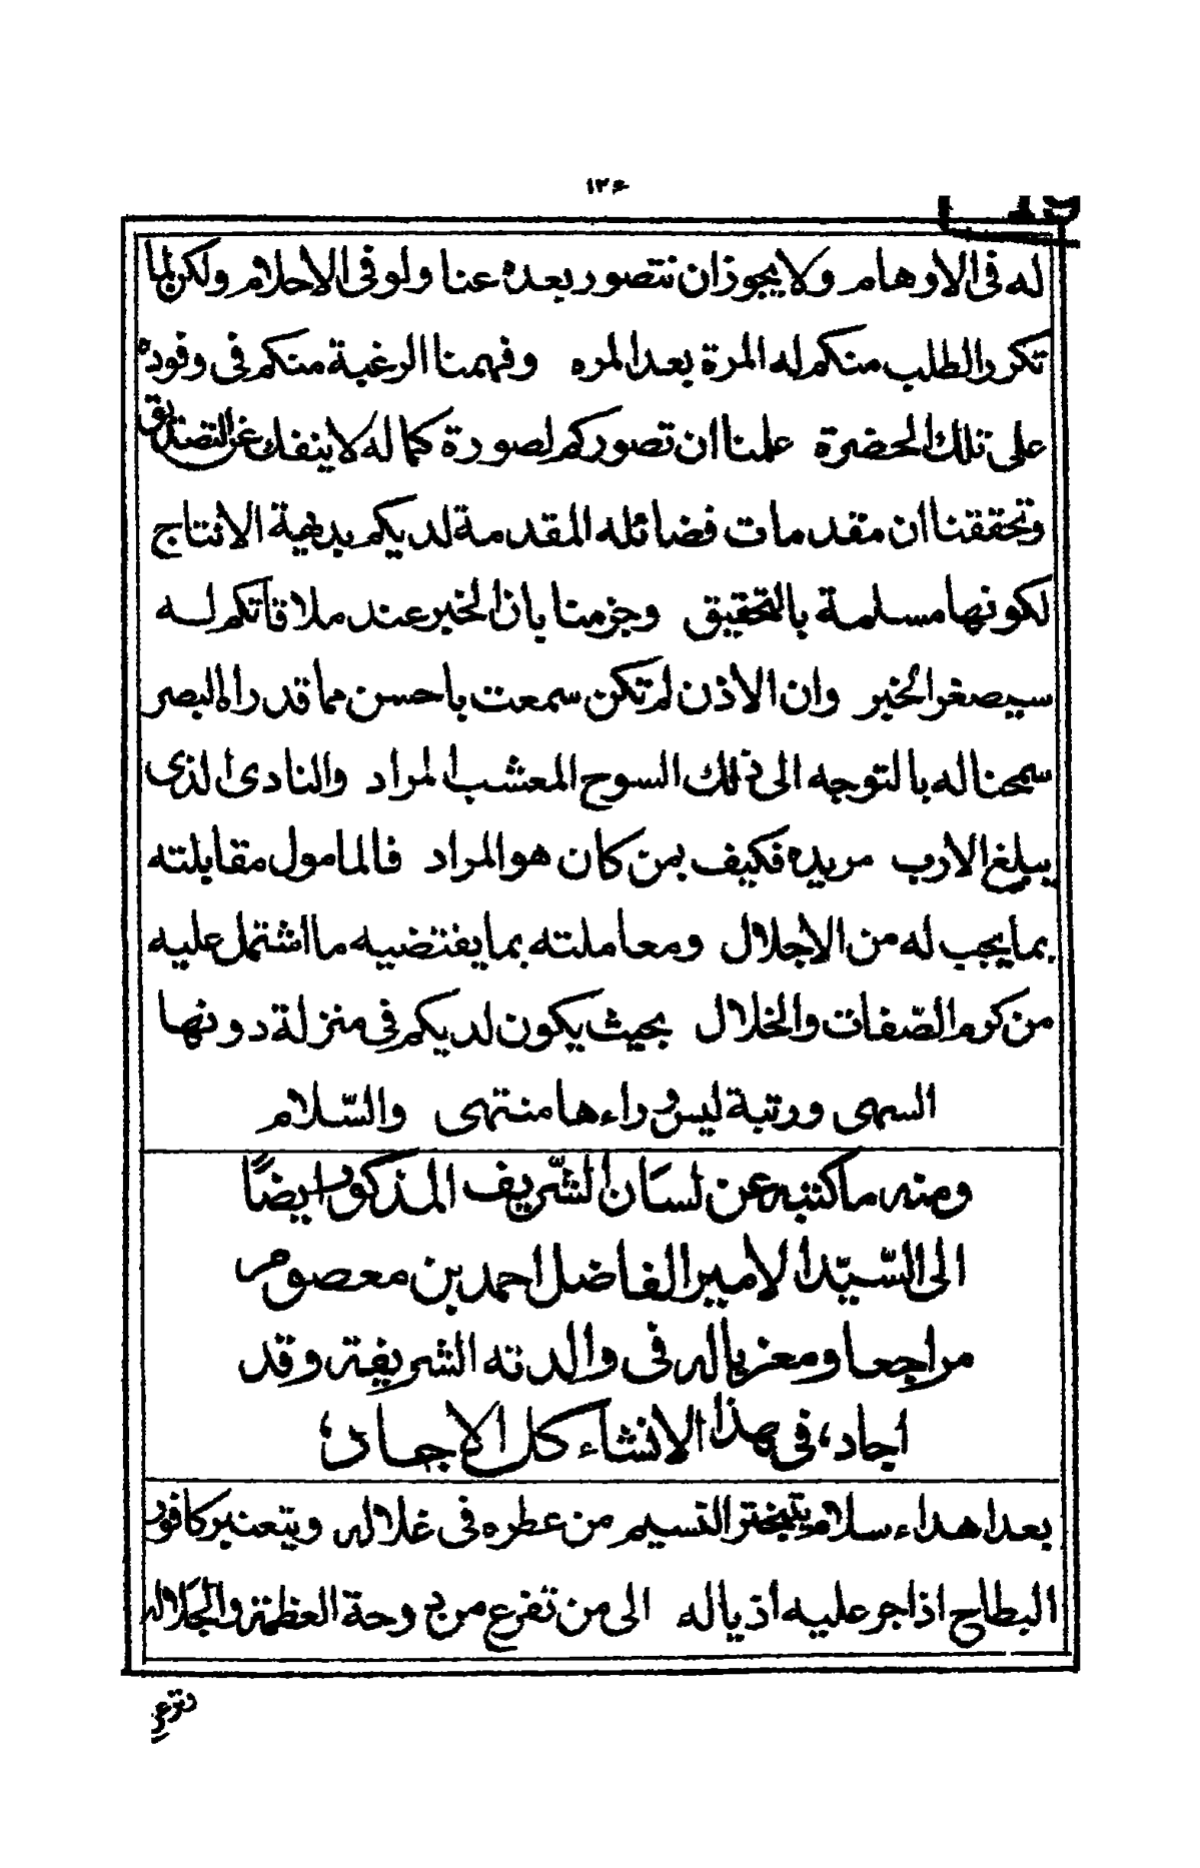 ١٢٤
له فى الاوهام ولا يجوز ان نتصور بعده عنا ولو فى الاحلام ولكن لما
تكرر الطلب منكم له المرة بعد المره وفهمنا الرغبة منكم فى وفوده
على تلك الحضرة علمنا ان تصوركم لصورة كماله لا ينفك عن التصديق
وتحققنا ان مقدمات فضائله المقدمة لديكم بديهية الانتاج
لكونها مسلمة بالتحقيق وجزمنا بان الخبر عند ملاقاتكم له
سيصغر الخبر وان الاذن لم تكن سمعت باحسن مما قد راه البصر
سمحنا له بالتوجه الى ذلك السوح المعشب المراد والنادى الذى
يبلغ الارب مريده فكيف بمن كان هو المراد فالمامول مقابلته
بما يجب له من الاجلال ومعاملته بما يقتضيه ما اشتمل عليه
من كرم الصّفات والخلال بحيث يكون لديكم فى منزلة دونها
السهى ورتبة ليس وراءها منتهى والسّلام
ومنه ما كتبه عن لسان الشّريف المذكور ايضًا
الى السّيّد الامير الفاضل احمد بن معصوم
مراجعا ومعزيا له فى والدته الشريفة وقد
اجاد، فى هذا الانشاء كل الاجماد،
بعد اهداء سلام يتبختر النسيم من عطره فى غلاله ويتعنبر كافور
البطاح اذا جر عليه اذياله الى من تفرع من دوحة العظمة والجلاله